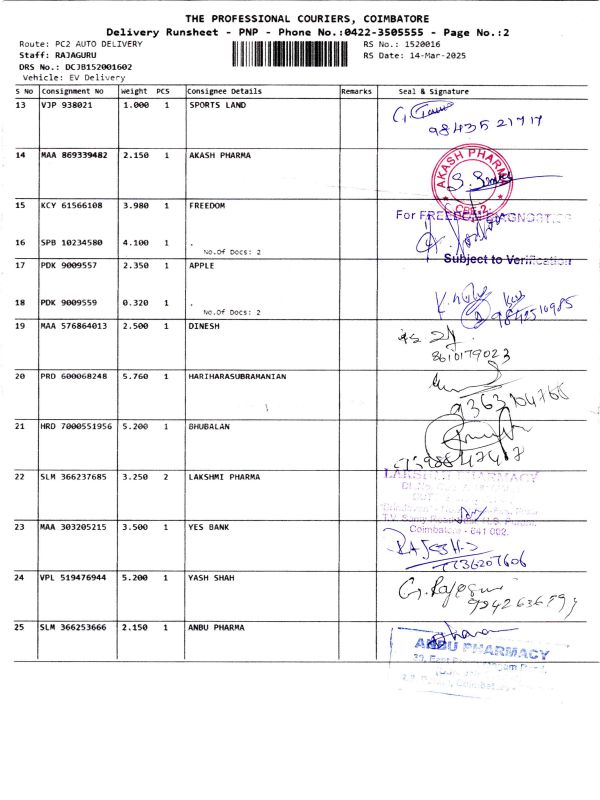 THE PROFESSIONAL COURIERS, COIMBATORE
Delivery Runsheet - PNP - Phone No.:0422-3505555 - Page No.:2
Route: PC2 AUTO DELIVERY
RS No.: 1520016
Staff: RAJAGURU
RS Date: 14-Mar-2025
DRS No.: DCJB152001602
Vehicle: EV Delivery
S No Consignment No Weight PCS Consignee Details Remarks Seal & Signature
13 VJP 938021 1.000 1 SPORTS LAND
98435 21717
14 MAA 869339482 2.150 1 AKASH PHARMA
AKASH PHARMA
CBE-2
15 KCY 61566108 3.980 1 FREEDOM
For FREEDOM DIAGNOSTICS
16 SPB 10234580 4.100 1 .
No.Of Docs: 2
Subject to Verification
17 PDK 9009557 2.350 1 APPLE
18 PDK 9009559 0.320 1 .
No.Of Docs: 2
9842510985
19 MAA 576864013 2.500 1 DINESH
8610179023
20 PRD 600068248 5.760 1 HARIHARASUBRAMANIAN
21 HRD 7000551956 5.200 1 BHUBALAN
22 SLM 366237685 3.250 2 LAKSHMI PHARMA
LAKSHMI PHARMACY
Coimbatore - 641 002.
23 MAA 303205215 3.500 1 YES BANK
24 VPL 519476944 5.200 1 YASH SHAH
25 SLM 366253666 2.150 1 ANBU PHARMA
ANBU PHARMACY